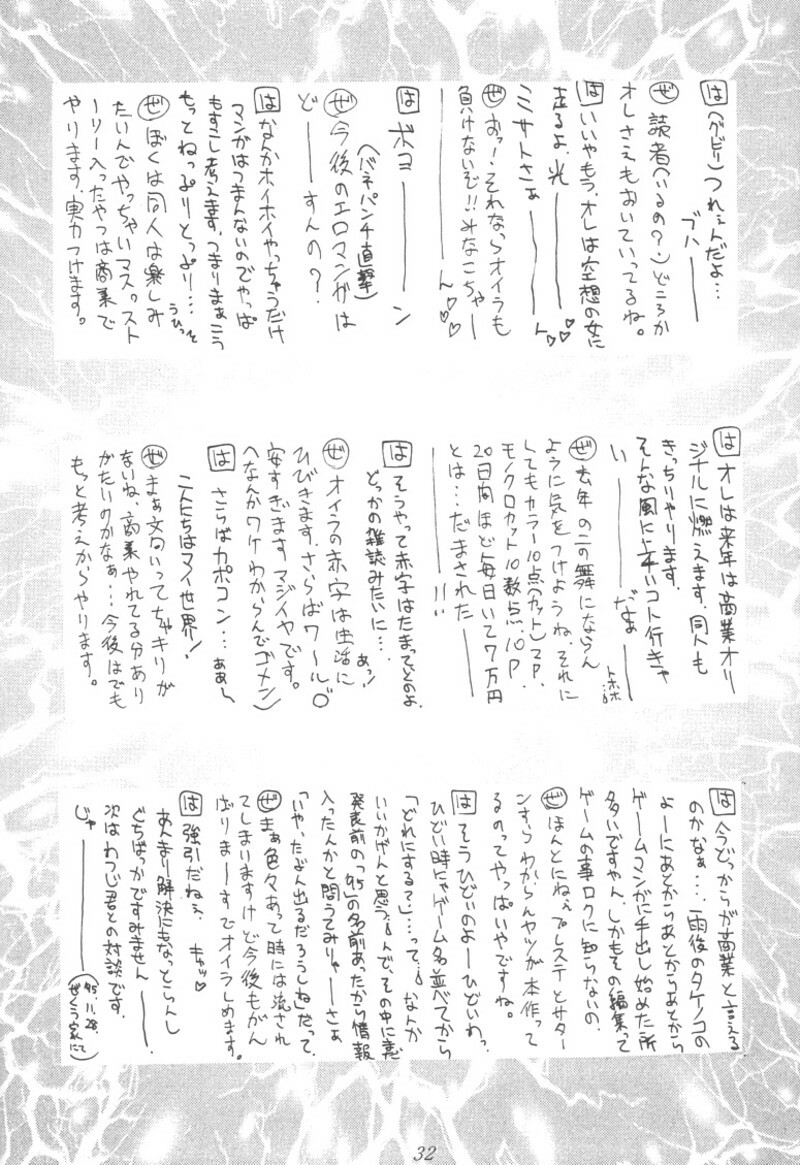 は(グビリ)つれぇんだよ…
ブハ――
ぜ 読者(いるの?)どころか
オレさえもおいていってるね。
は いいやもう、オレは空想の女に
走るよ、光――
ミサトさぁ――ん♡♡
ぜ おっ!それならオイラも
負けないぞ!!みなこちゃー
――ん♡♡
は ボコ――ン
(バネパンチ直撃)
ぜ 今後のエロマンガは
ど――すんの?
は なんかホイホイやっちゃうだけ
マンガはつまんないのでやっぱ
もすこし考えます。つまりまぁこう
もっとねっぷりとっぷり… うひっっと
ぜ ぼくは同人は楽しみ
たいんでやっちゃいマス。スト
ーリー入ったやつは商業で
やります、実力つけます。
は オレは来年は商業オリ
ジナルに燃えます、同人も
きっちりやります。
そんな風に上手いコト行きゃ
い――だよ―― トホホ…
ぜ 去年の二の舞にならん
ように気をつけようね、それに
してもカラー10点(カット)2P、
モノクロカット10数点、10P
20日間ほど毎日いて7万円
とは…だまされた――
――!!
は そうやって赤字はたまってくのよ、
どっかの雑誌みたいに…
あっ!
ぜ オイラの赤字は生活に
ひびきます、さらばワールド。
安すぎます マジイヤです。
(なんかワケわからんでゴメン)
は さらばカポコン…ああ〜
こんにちはマイ世界!
ぜ まぁ文句いってちゃキリが
ないね、商業やれてる分あり
がたいのかなぁ…今後はでも
もっと考えからやります。
は 今どっからが商業と言える
のかなぁ…雨後のタケノコの
よーにあとからあとからあとから
ゲームマンガに手出し始めた所
多いですやん、しかもその編集って
ゲームの事ロクに知らないの、
ぜ ほんとにねェプレステとサター
ンすらわからんヤツが本作って
るのってやっぱいやですね。
は そうひどいのよーひどいわっ
ひどい時にゃゲーム名並べてから
「どれにする?」…って…。なんか
いいかげんと思う。んで、その中に未
発表前の「'95」の名前あったから情報
入ったんかと問うてみりゃーさぁ
「いや、たぶん出るだろうしね」だって、
ぜ まぁ色々あって時には流され
てしまいますけど今後もがん
ばりまーすでオイラしめます。
は 強引だねぇ、 キャッ♡
あんまり解決にもなっとらんし
ぐちばっかですみません――。
次はわつじ君との対談です、
じゃ――
('95.11.28. ぜくう家にて)
32